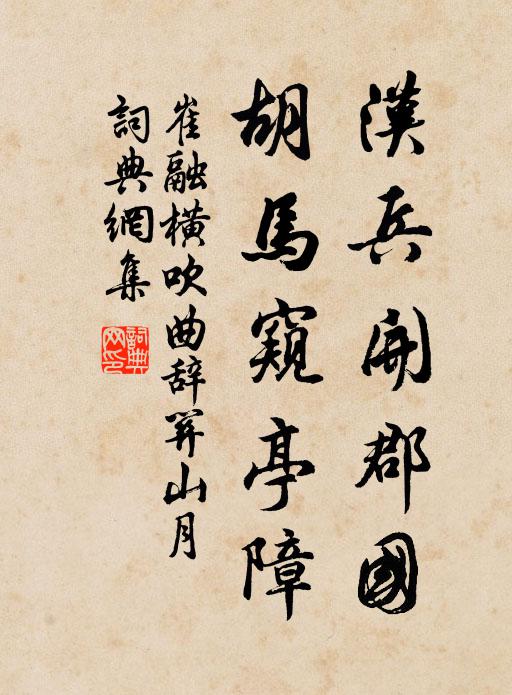 漢兵開郡國
胡馬窺亭障
崔融橫吹曲辞關山月
詞典網集
詞典網印